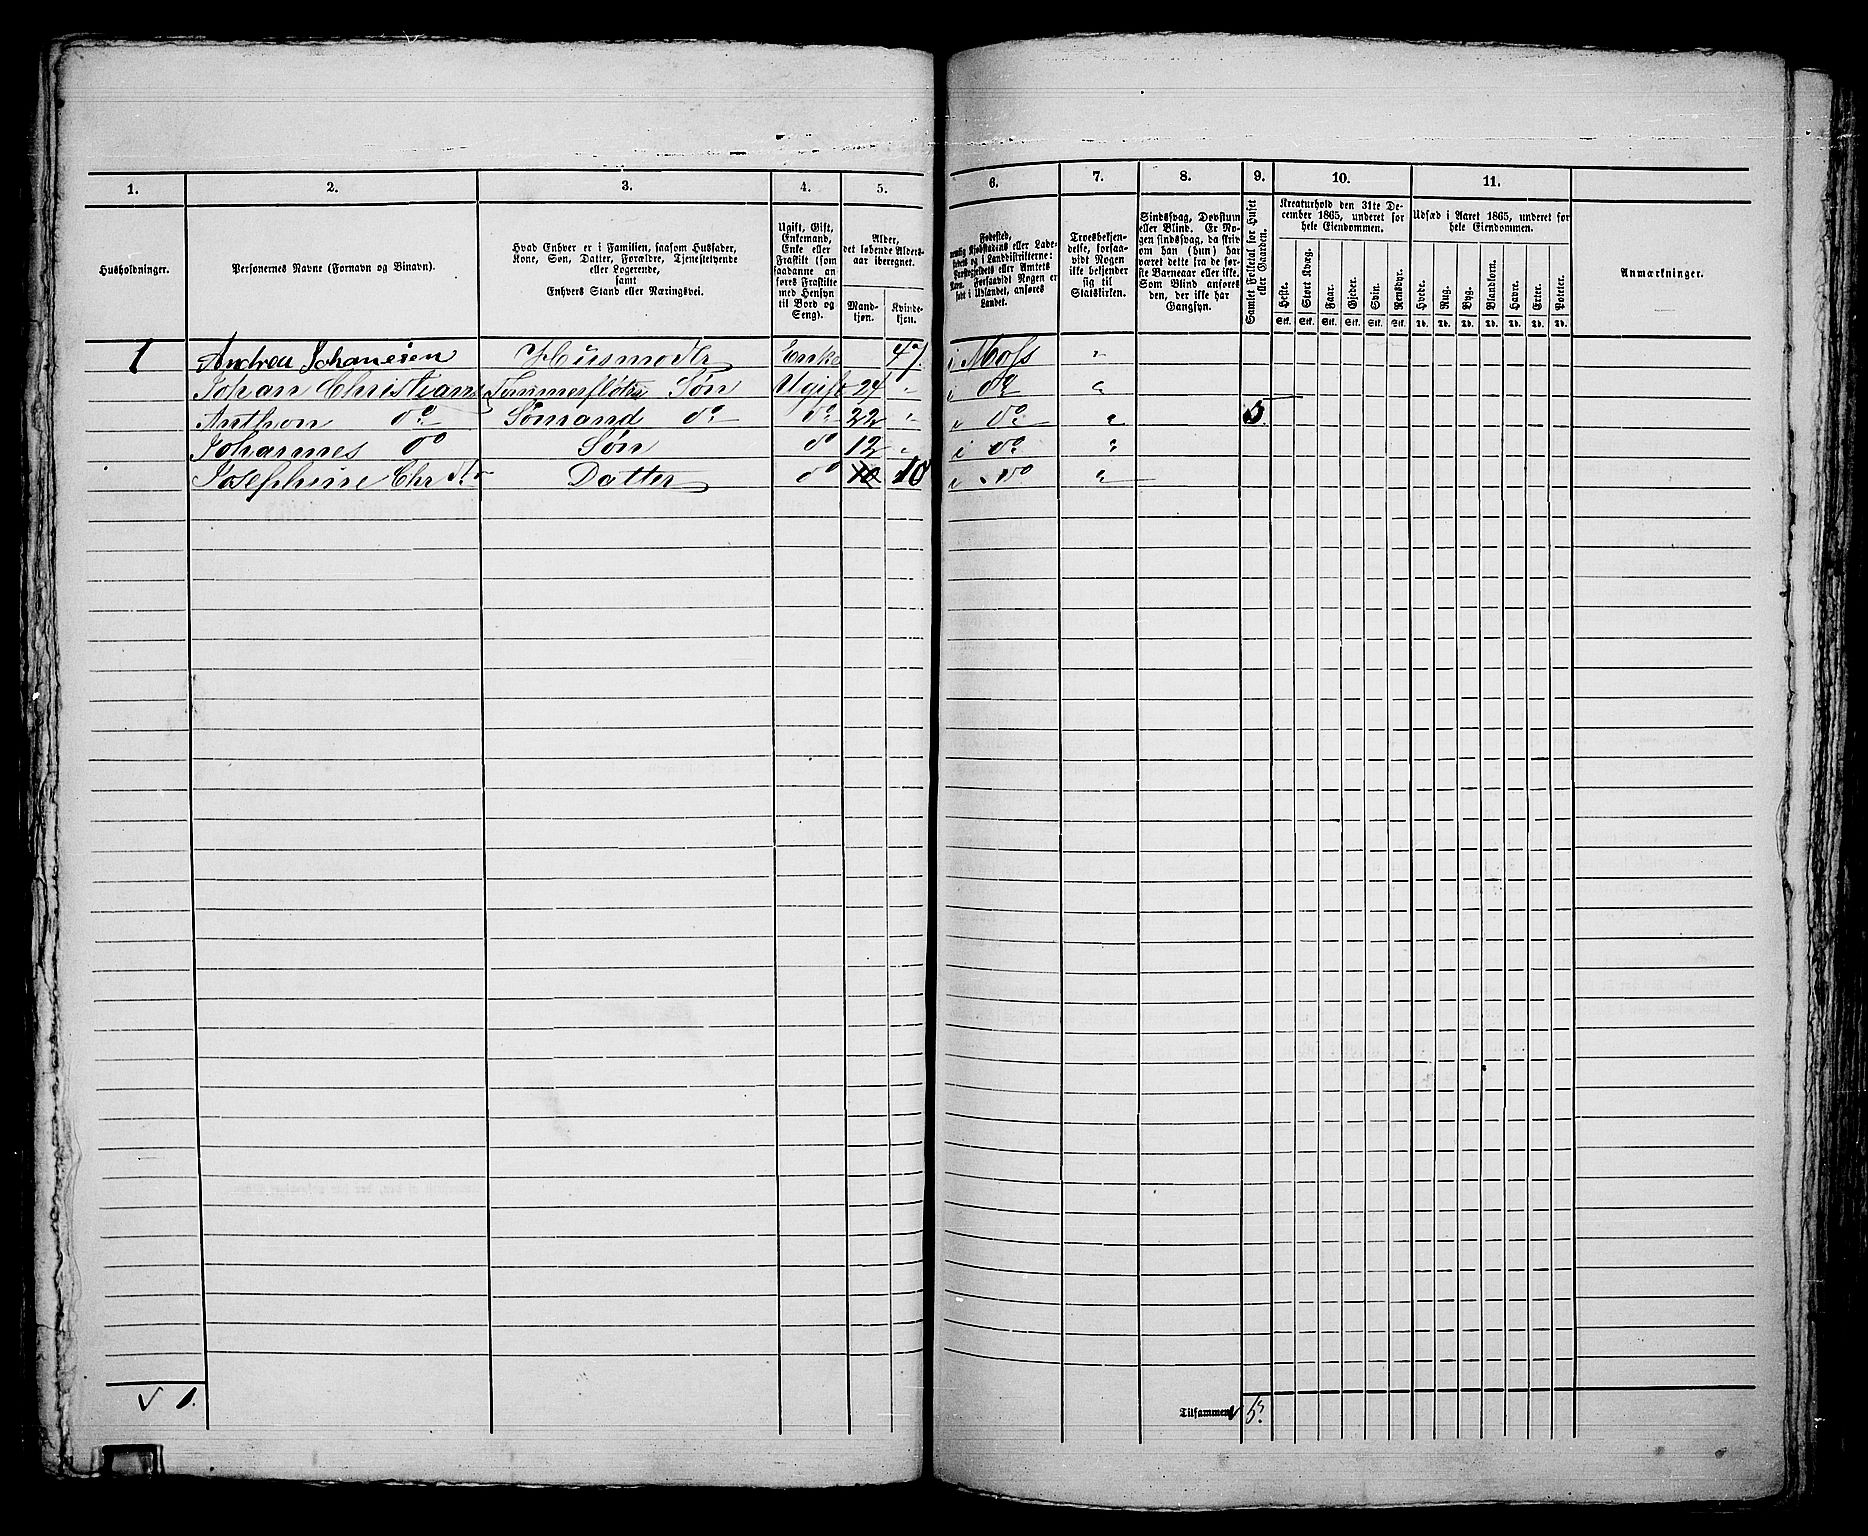 1. 2. 3. 4. 5. 6. 7. 8. 9. 10. 11.
Husholdninger.
Personernes Navne (Fornavn og Binavn).
Hvad Enhver er i Familien, saasom Husfader,
Kone, Søn, Datter, Forældre, Tjenestetyende
eller Logerende,
samt
Enhvers Stand eller Næringsvei.
Ugift, Gift,
Enkemand,
Enke eller
Fraskilt (som
saadanne an-
føres Fraskilte
med Hensyn
til Bord og
Seng).
Alder,
det løbende Alders-
aar iberegnet.
Mand-
kjøn.
Kvinde-
kjøn.
Fødested,
nemlig Kjøbstadens eller Lade-
stedets og i Landdistrikterne:
Præstegjeldets eller Amtets
Navn. Forsaavidt Nogen er
født i Udlandet, anføres
Landet.
Troesbekjen-
delse, forsaa-
vidt Nogen
ikke bekjender
sig til
Statskirken.
Sindssvag, Døvstum
eller Blind. Er No-
gen sindssvag, da skriv
om han (hun) har
været dette fra de før-
ste Barneaar eller ikke.
Som Blind anføres
den, der ikke har
Gangsyn.
Samlet Folketal for Huset
eller Gaarden.
Kreaturhold den 31te De-
cember 1865, underet for
hele Eiendommen.
Heste. Stort Kvæg. Faar. Gjeder. Svin. Rensdyr.
Stk. Stk. Stk. Stk. Stk. Stk.
Udsæd i Aaret 1865, underet for
hele Eiendommen.
Hvede. Rug. Byg. Blandkorn. Havre. Erter. Poteter.
Td. Td. Td. Td. Td. Td. Td.
Anmærkninger.
1 Andrea Johanesen Husmoder Enke 47 i Moss "
Johan Christians Tømmerfløter Søn Ugift 24 " i do "
Anthon do Sømand do do 22 " i do " 5.
Johannes do Søn do 12 " i do "
Josephine Chr Datter do 10 10 i do "
√ 1.
Tilsammen √ 5